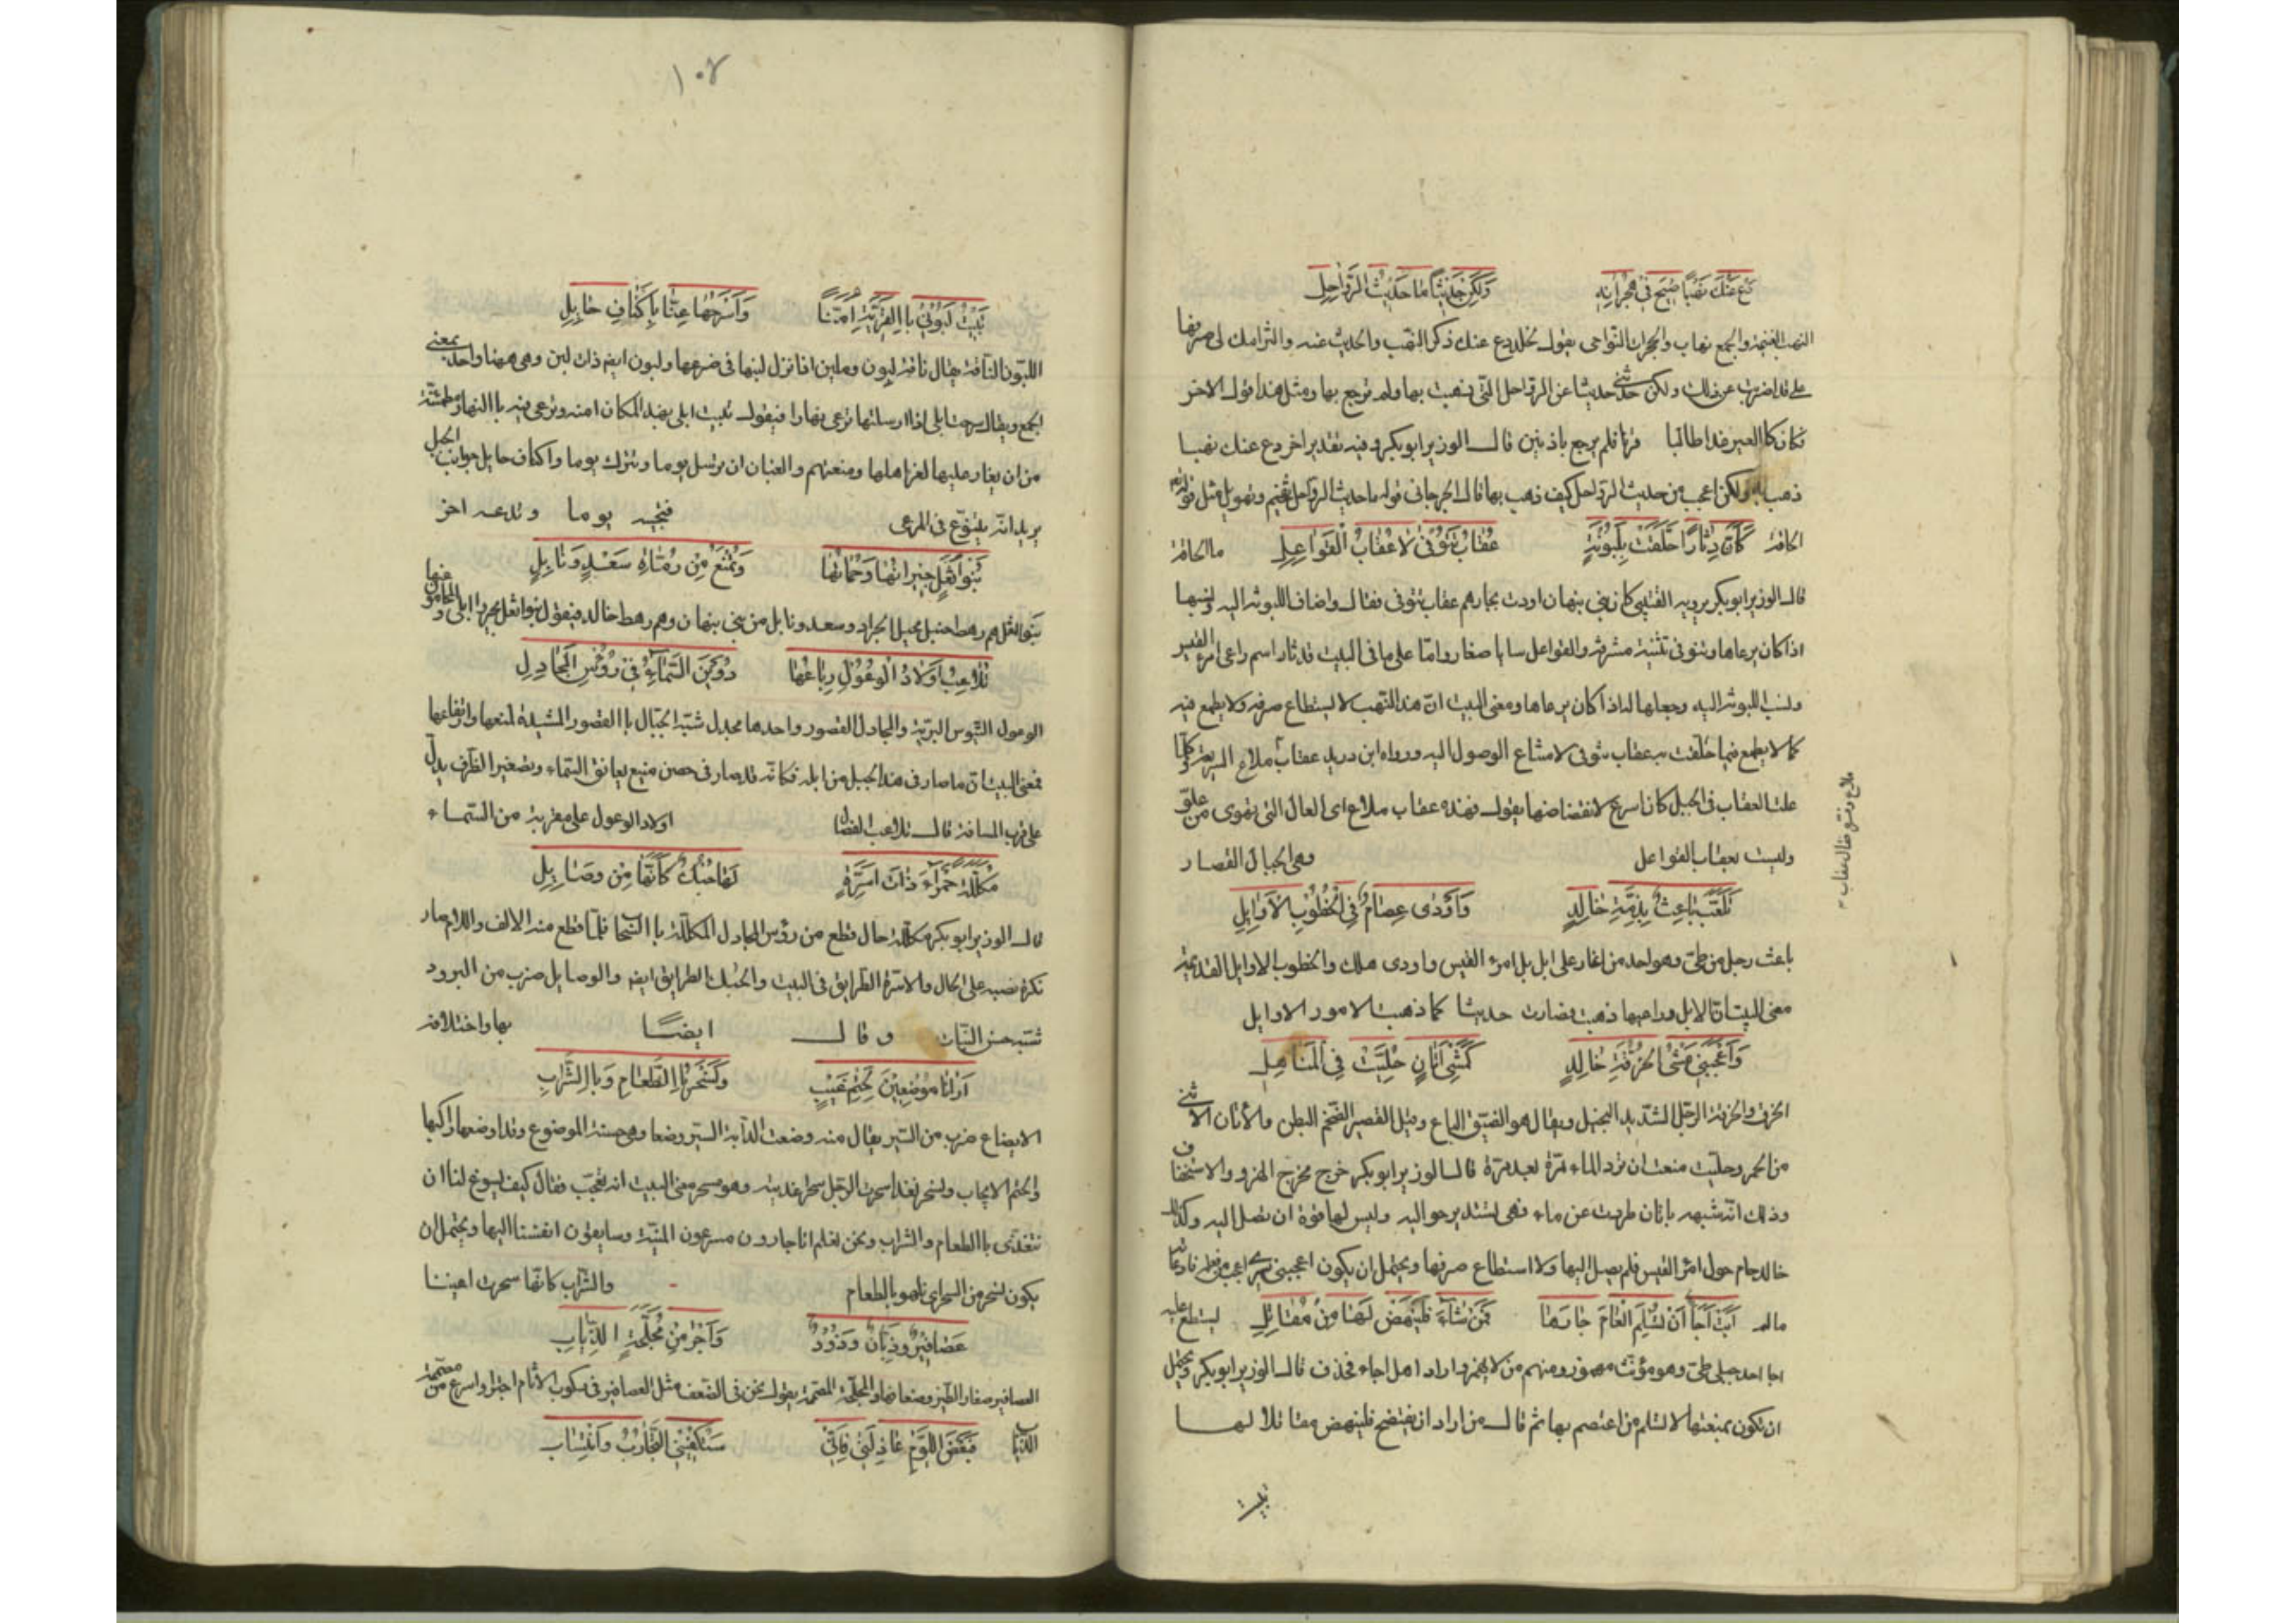 دع عنك نهبا صيح في حجراته ولكن حديثا ما حديث الرواحل
النهب الغنيمة والجمع نهاب والحجرات النواحى يقول لخالد دع عنك ذكر النهب والحديث عنه
على قد اضربت عن ذلك ولكن حدثني حديثا عن الرواحل التى ذهبت بها ولم ترجع بها ومثل هذا قول الاخر
فكان كالعير غدا طالبا قرنا فلم يرجع باذنين قال الوزير ابو بكر وفيه تقدير اخر دع عنك نهبا
ذهب به ولكن اعجب من حديث الرواحل كيف ذهب بها قال الجرجانى قوله ما حديث الرواحل تفخيم وتهويل مثل قوله
الحاقة كأن دثارا حلقت بلبونه عقاب تنوفى لا عقاب القواعل ما الحاقة
قال الوزير ابو بكر يرويه القتيبى كان بنى نبهان اودت بجارهم عقاب تنوفى فقال واضاف اللبون اليه ونسبها
اذ كان يرعاها وتنوفى ثنية مشرفة والقواعل صغار واما على ما فى البيت فدثار اسم راعى امرئ القيس
ونسب اللبون اليه وجعلها له اذ كان يرعاها ومعنى البيت ان هذا النهب لا يستطاع صرفه ولا يطمع فيه
كما لا يطمع فيما حلقت به عقاب تنوفى لامتناع الوصول اليه ورواه ابن دريد عقاب ملاع السريعة وكلما
علت العقاب فى الجبل كان اسرع لانقضاضها يقول فهذه عقاب ملاع اى العال التى تهوى من علو
وليست بعقاب القواعل وهى الجبال القصار
تلعب باعث بذمة خالد وأودى عصام في الخطوب الأوايل
باعث رجل من طى وهو احد من اغار على ابل امرئ القيس واودى هلك والخطوب الاوايل القديمة
معنى البيت ان الابل وراعيها ذهبت فصارت حديثا كما ذهبت الامور الاوايل
وأعجبني مشي الحزقة خالد كمشي أتان حليت في المناهل
الحزق والحزقة الرجل الشديد البخيل ويقال هو الضيق الباع وقيل القصير الضخم البطن والاتان الانثى
من الحمر وحليت منعت ان ترد الماء مرة بعد مرة قال الوزير ابو بكر خرج مخرج الهزو والاستخفاف
وذلك انه شبهه باتان طردت عن ماء فهى تستدير حواليه وليس لها قوة ان تصل اليه وكذلك
خالد حام حول امرئ القيس فلم يصل اليها ولا استطاع صرفها ويحتمل ان يكون اعجبنى
مالم أبت أجأ أن تسلم العام جارها فمن شاء فلينهض لها من مقاتل يستطع عليه
اجا احد جبلى طى وهو مؤنث مهموز ومنهم من لا يهمز واراد اهل اجاء فحذف قال الوزير ابو بكر ويحتمل
ان تكون بمنعتها لا تسلم من اعتصم بها ثم قال من اراد ان يفتضح فلينهض مقاتلا لها
تبيت
ملاع
١٠٢
تبيت لبوني باالقرية امنا وأسرحها غبا بأكناف حايل
اللبون الناقة يقال ناقة لبون وملبن اذا نزل لبنها فى ضرعها ولبون ايضا ذات لبن وهى ههنا واحد بمعنى
الجمع ويقال سرحت ابلى اذا ارسلتها ترعى نهارا فيقول تبيت ابلى بهذا المكان امنه وترعى فيه باالنهار مطمئنة
من ان يغار عليها لعز اهلها ومنعتهم والغبان ان ترسل يوما وتترك يوما واكناف حايل جوانب الجبل
يريد انه يتنوع فى المرعى فتجيه يوما وتدعه اخر
بنو ثعل جيرانها وحماتها وتمنع من رماة سعد ونابل
بنو ثعل هم رهط حنبل مجيل الجراد وسعد ونابل من بنى نبهان وهم رهط خالد فيقول بنو ثعل ابلى والمحامون عنها
تلاعب أولاد الوعول رباعها دوين السماء في رؤس المجادل
الوعول التيوس البرية والمجادل القصور واحدها مجدل شبه الجبال باالقصور المشيدة لمنعها وارتفاعها
فمعنى البيت ان ما صار فى هذا الجبل من ابله فكانه قد صار فى حصن منيع يعانق السماء وتصغير الظرف يدل
على قرب المسافة قال تلاعب الفصال اولاد الوعول على مقربة من السماء
مكللة حمراء ذات اسرة لها حبك كأنها من وصايل
قال الوزير ابو بكر مكللة حال قطع من رؤس المجادل المكللة باالسحاب فلما قطع منه الالف واللام صار
نكرة نصبه على الحال والاسرة الطرايق فى البيت والحبك الطرايق ايضه والوصايل ضرب من البرود
شبه حسن النبات بها واختلافه وقال ايضا
أرانا موضعين لحتم غيب ونسحر باالطعام وباالشراب
الايضاع ضرب من السير يقال منه وضعت الدابة السير وضعا وهى حسنة الموضوع وقد اوضعها راكبها
والحتم الايجاب ونسحر نغدا سحرت الرجل سحرا غديته وهو مسحر معنى البيت انه تعجب فقال كيف يسوغ لنا ان
نتغذى باالطعام والشراب ونحن نعلم انا جادون مسرعون المنية وسايقون انفسنا اليها ويحتمل ان
يكون نسحر من السحر اى نلهو باالطعام والشراب كانها سحرت اعيننا
عصافير وذبان ودود وأجر من مجلحة الذئاب
العصافير صغار الطير وضعافها والمجلحة المصممة يقول نحن فى الضعف مثل العصافير فى ركوب الاثام اجرا واسرع من مصممة
الذئاب فبعض اللوم عاذلتي فاني ستكفيني التجارب وانتسابي